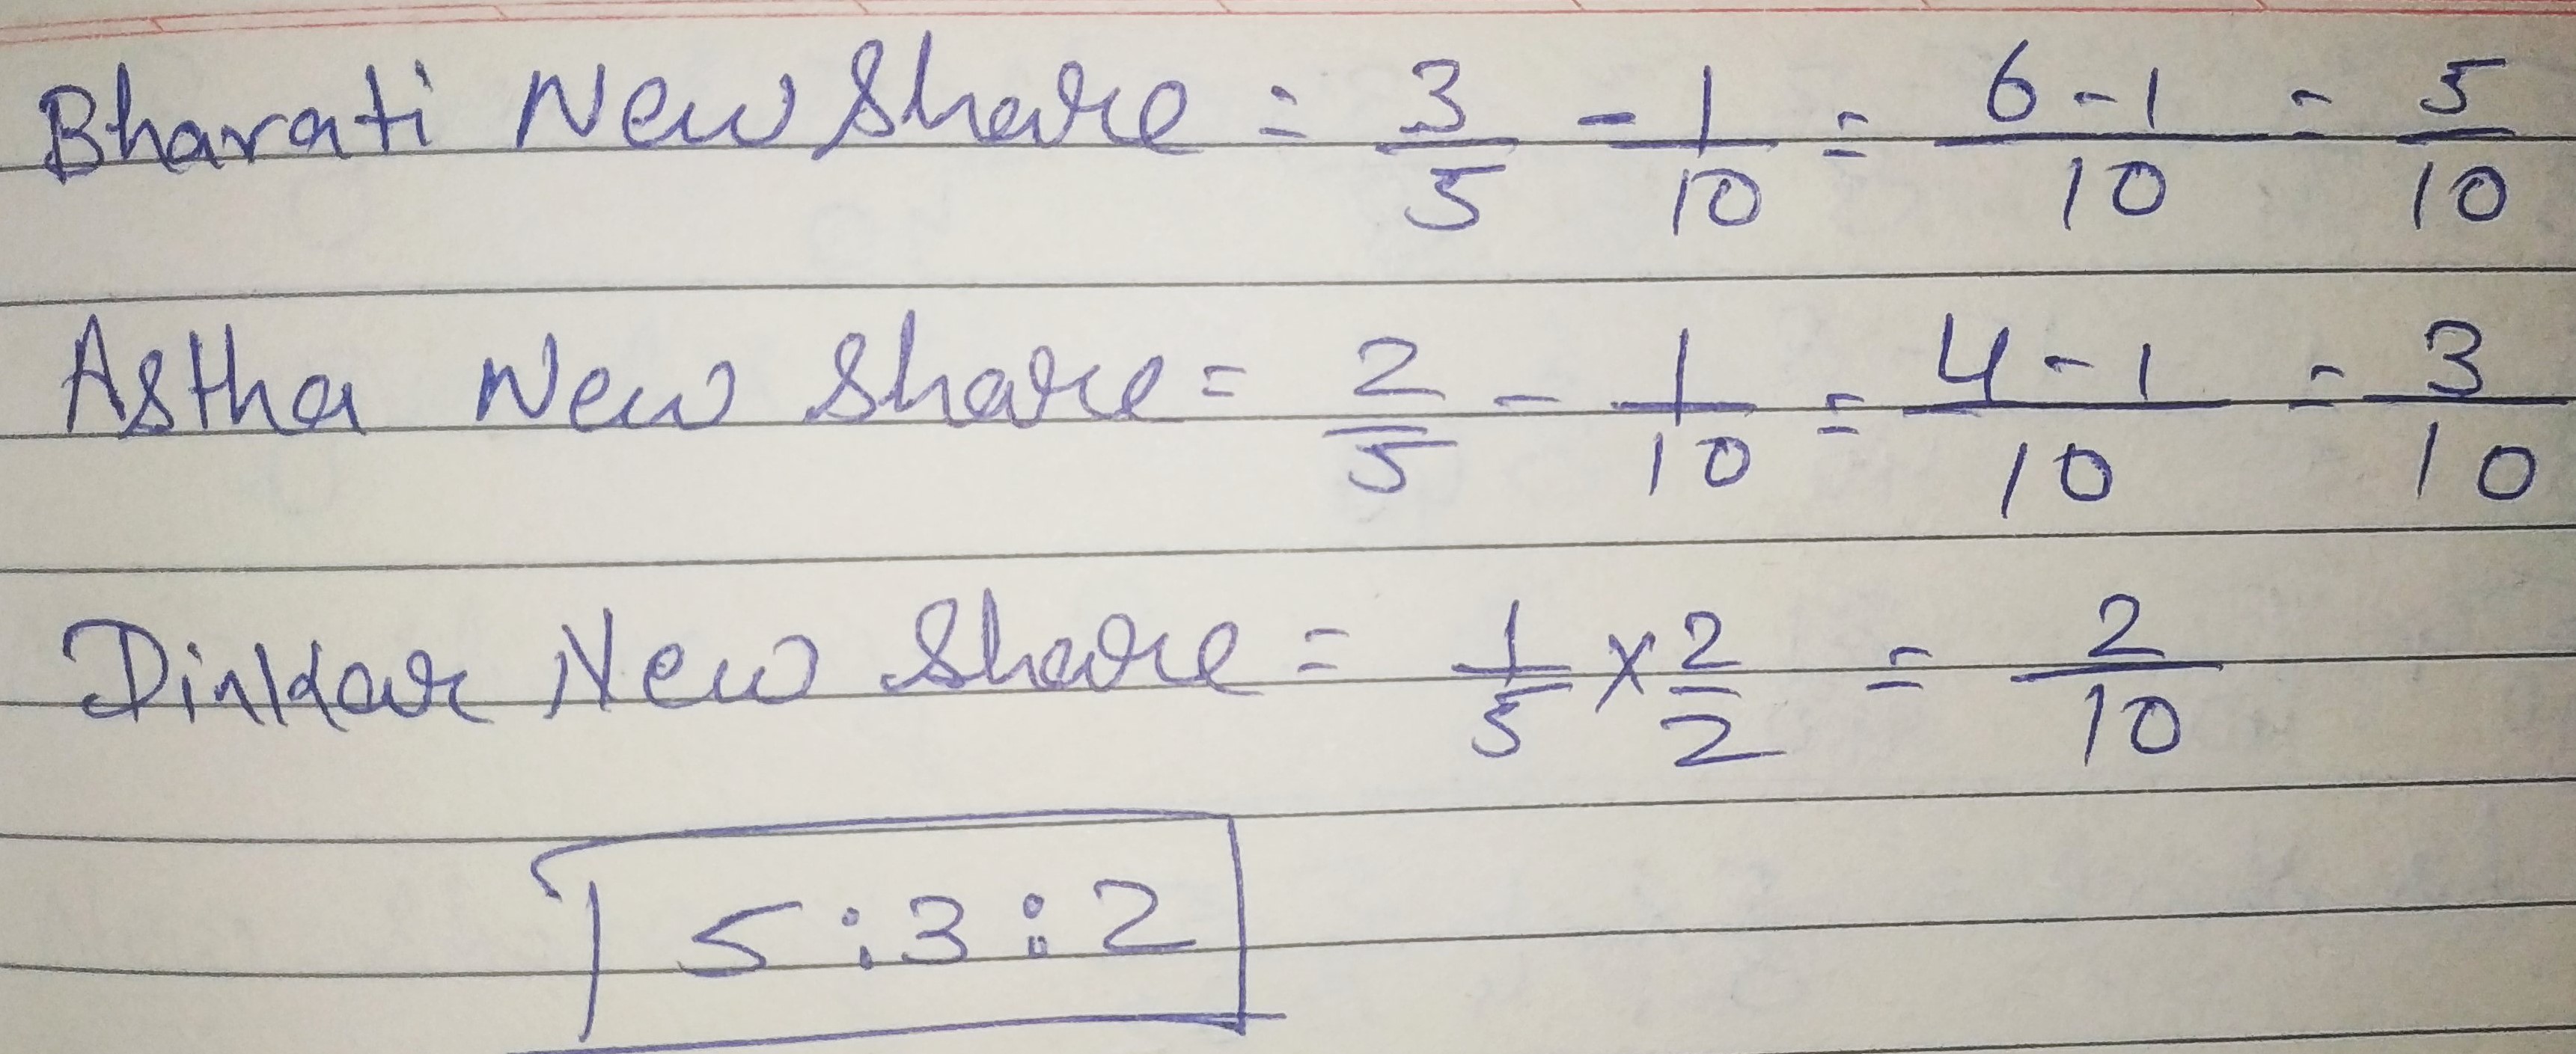 Bharati New Share = 3/5 - 1/10 = 6-1/10 = 5/10
Astha New Share = 2/5 - 1/10 = 4-1/10 = 3/10
Dinkar New Share = 1/5 × 2/2 = 2/10
5:3:2